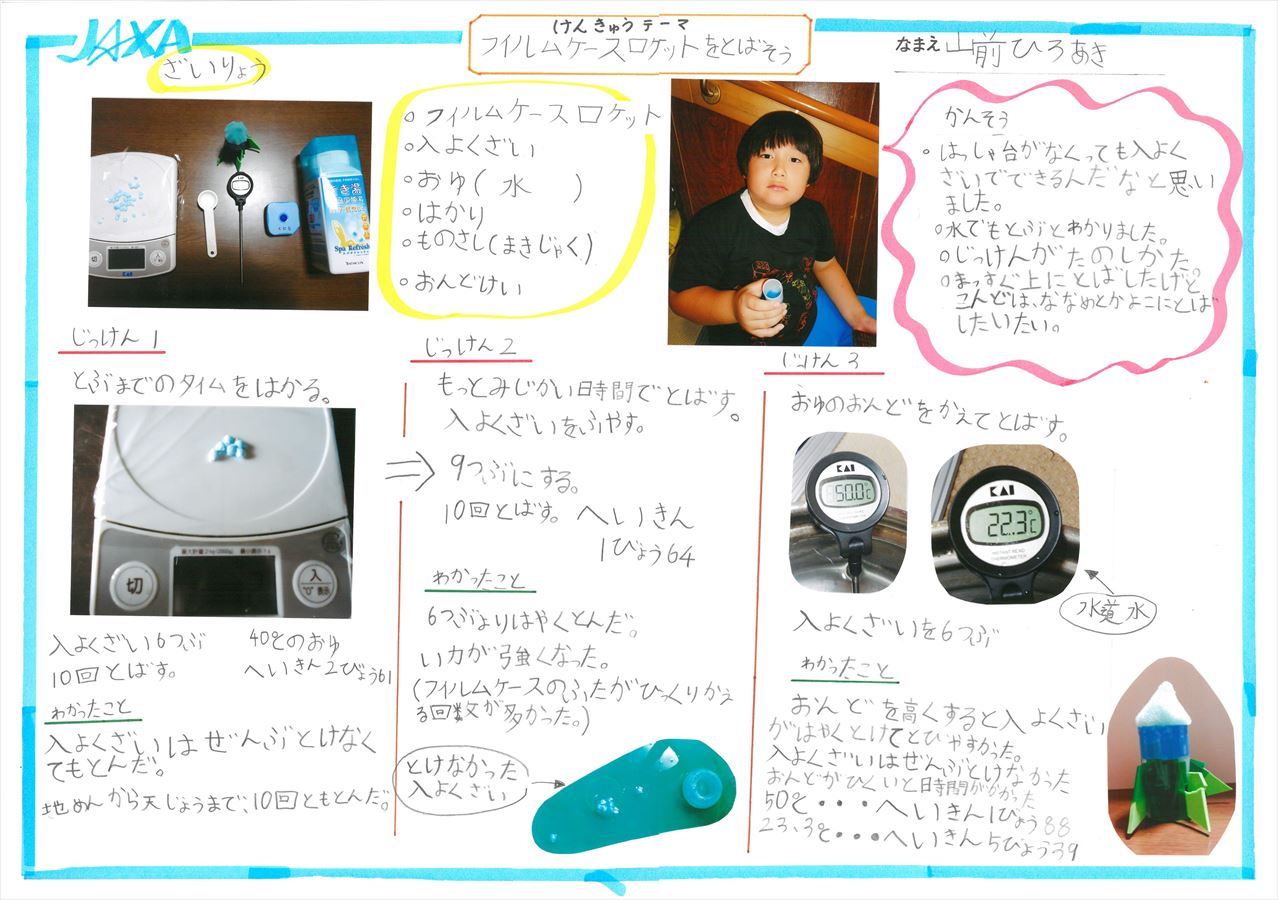 JAXA
けんきゅうテーマ
フイルムケースロケットをとばそう
なまえ 山前ひろあき
ざいりょう
・フィルムケースロケット
・入よくざい
・おゆ(水)
・はかり
・ものさし(まきじゃく)
・おんどけい
かんそう
・はっしゃ台がなくっても入よく
ざいでできるんだなと思い
ました。
・水でもとぶとわかりました。
・じっけんがたのしかた
・まっすぐ上にとばしたけど
こんどは、ななめとかよこにとば
したいたい。
切
KAI
Spa Refresh
じっけん1
とぶまでのタイムをはかる。
最大計量2kg(2000g) 最小表示1g
切
入
"0"表示
入よくざい6つぶ 40℃のおゆ
10回とばす。 へいきん2びょう61
わかったこと
入よくざいはぜんぶとけなく
てもとんだ。
地めんから天じょうまで、10回ともとんだ。
じっけん2
もっとみじかい時間でとばす。
入よくざいをふやす。
⇒ 9つぶにする。
10回とばす。へいきん
1びょう64
わかったこと
6つぶよりはやくとんだ。
い力が強くなった。
(フィルムケースのふたがひっくりかえ
る回数が多かった。)
とけなかった
入よくざい
じっけん3
おゆのおんどをかえてとばす。
KAI
50.0℃
KAI
22.3℃
INSTANT READ
THERMOMETER
水道水
入よくざいを6つぶ
わかったこと
おんどを高くすると入よくざい
がはやくとけてとびやすかった。
入よくざいはぜんぶとけなかった
おんどがひくいと時間がかかった
50℃・・・へいきん1びょう88
23.3℃・・・へいきん5びょう39